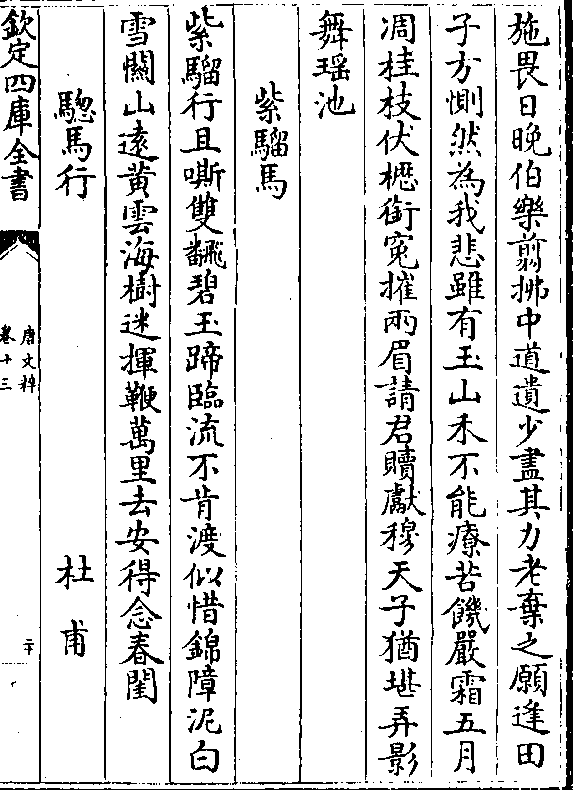 施畏日晚伯樂翦拂中道遺少盡其力老棄之願逢田
子方惻然為我悲雖有玉山禾不能療苦饑嚴霜五月
凋桂枝伏櫪銜寃摧兩眉請君贖獻穆天子猶堪弄影
舞瑶池
紫騮馬
紫騮行且嘶雙飜碧玉蹄臨流不肯渡似惜錦障泥白
雪關山遠黄雲海樹迷揮鞭萬里去安得念春閨
驄馬行 杜甫
欽定四庫全書
唐文粹
卷十三
二十